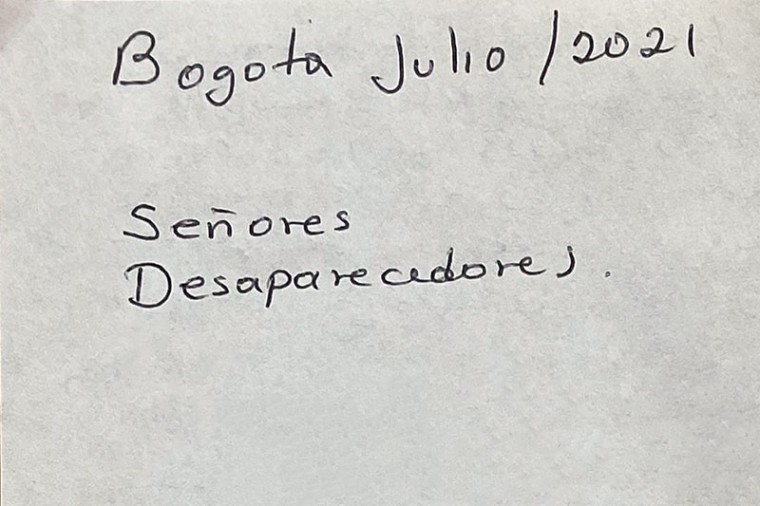 Bogotá Julio /2021
Señores
Desaparecedores.